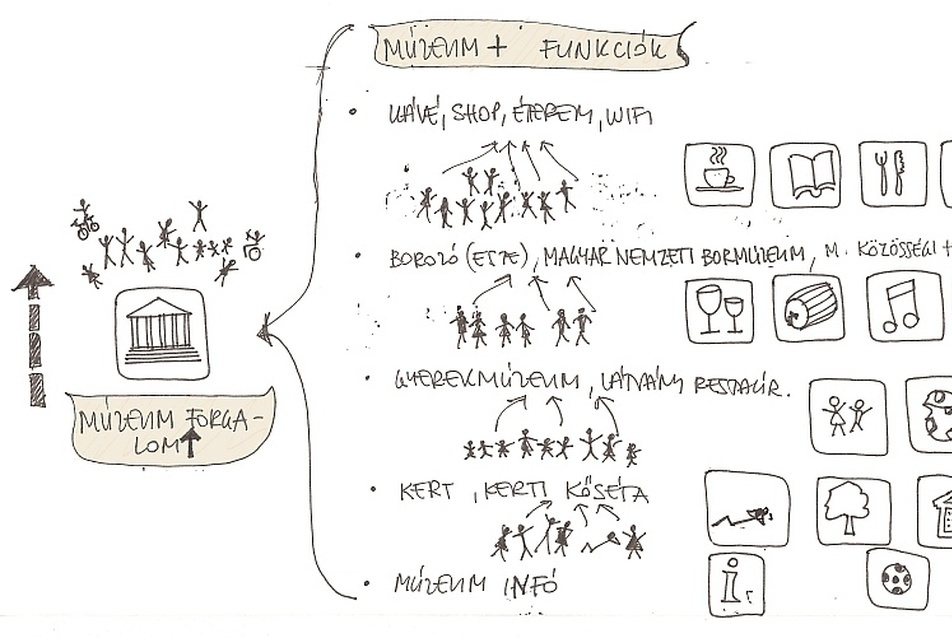 MÚZEUM + FUNKCIÓK
• KÁVÉ, SHOP, ÉTTEREM, WIFI
• BOROZÓ (ESTE), MAGYAR NEMZETI BORMÚZEUM, M. KÖZÖSSÉGI
• GYEREKMÚZEUM, LÁTVÁNY RESTAUR.
MÚZEUM FORGA-
LOM
• KERT, KERTI KŐSÉTA
• MÚZEUM INFÓ
i